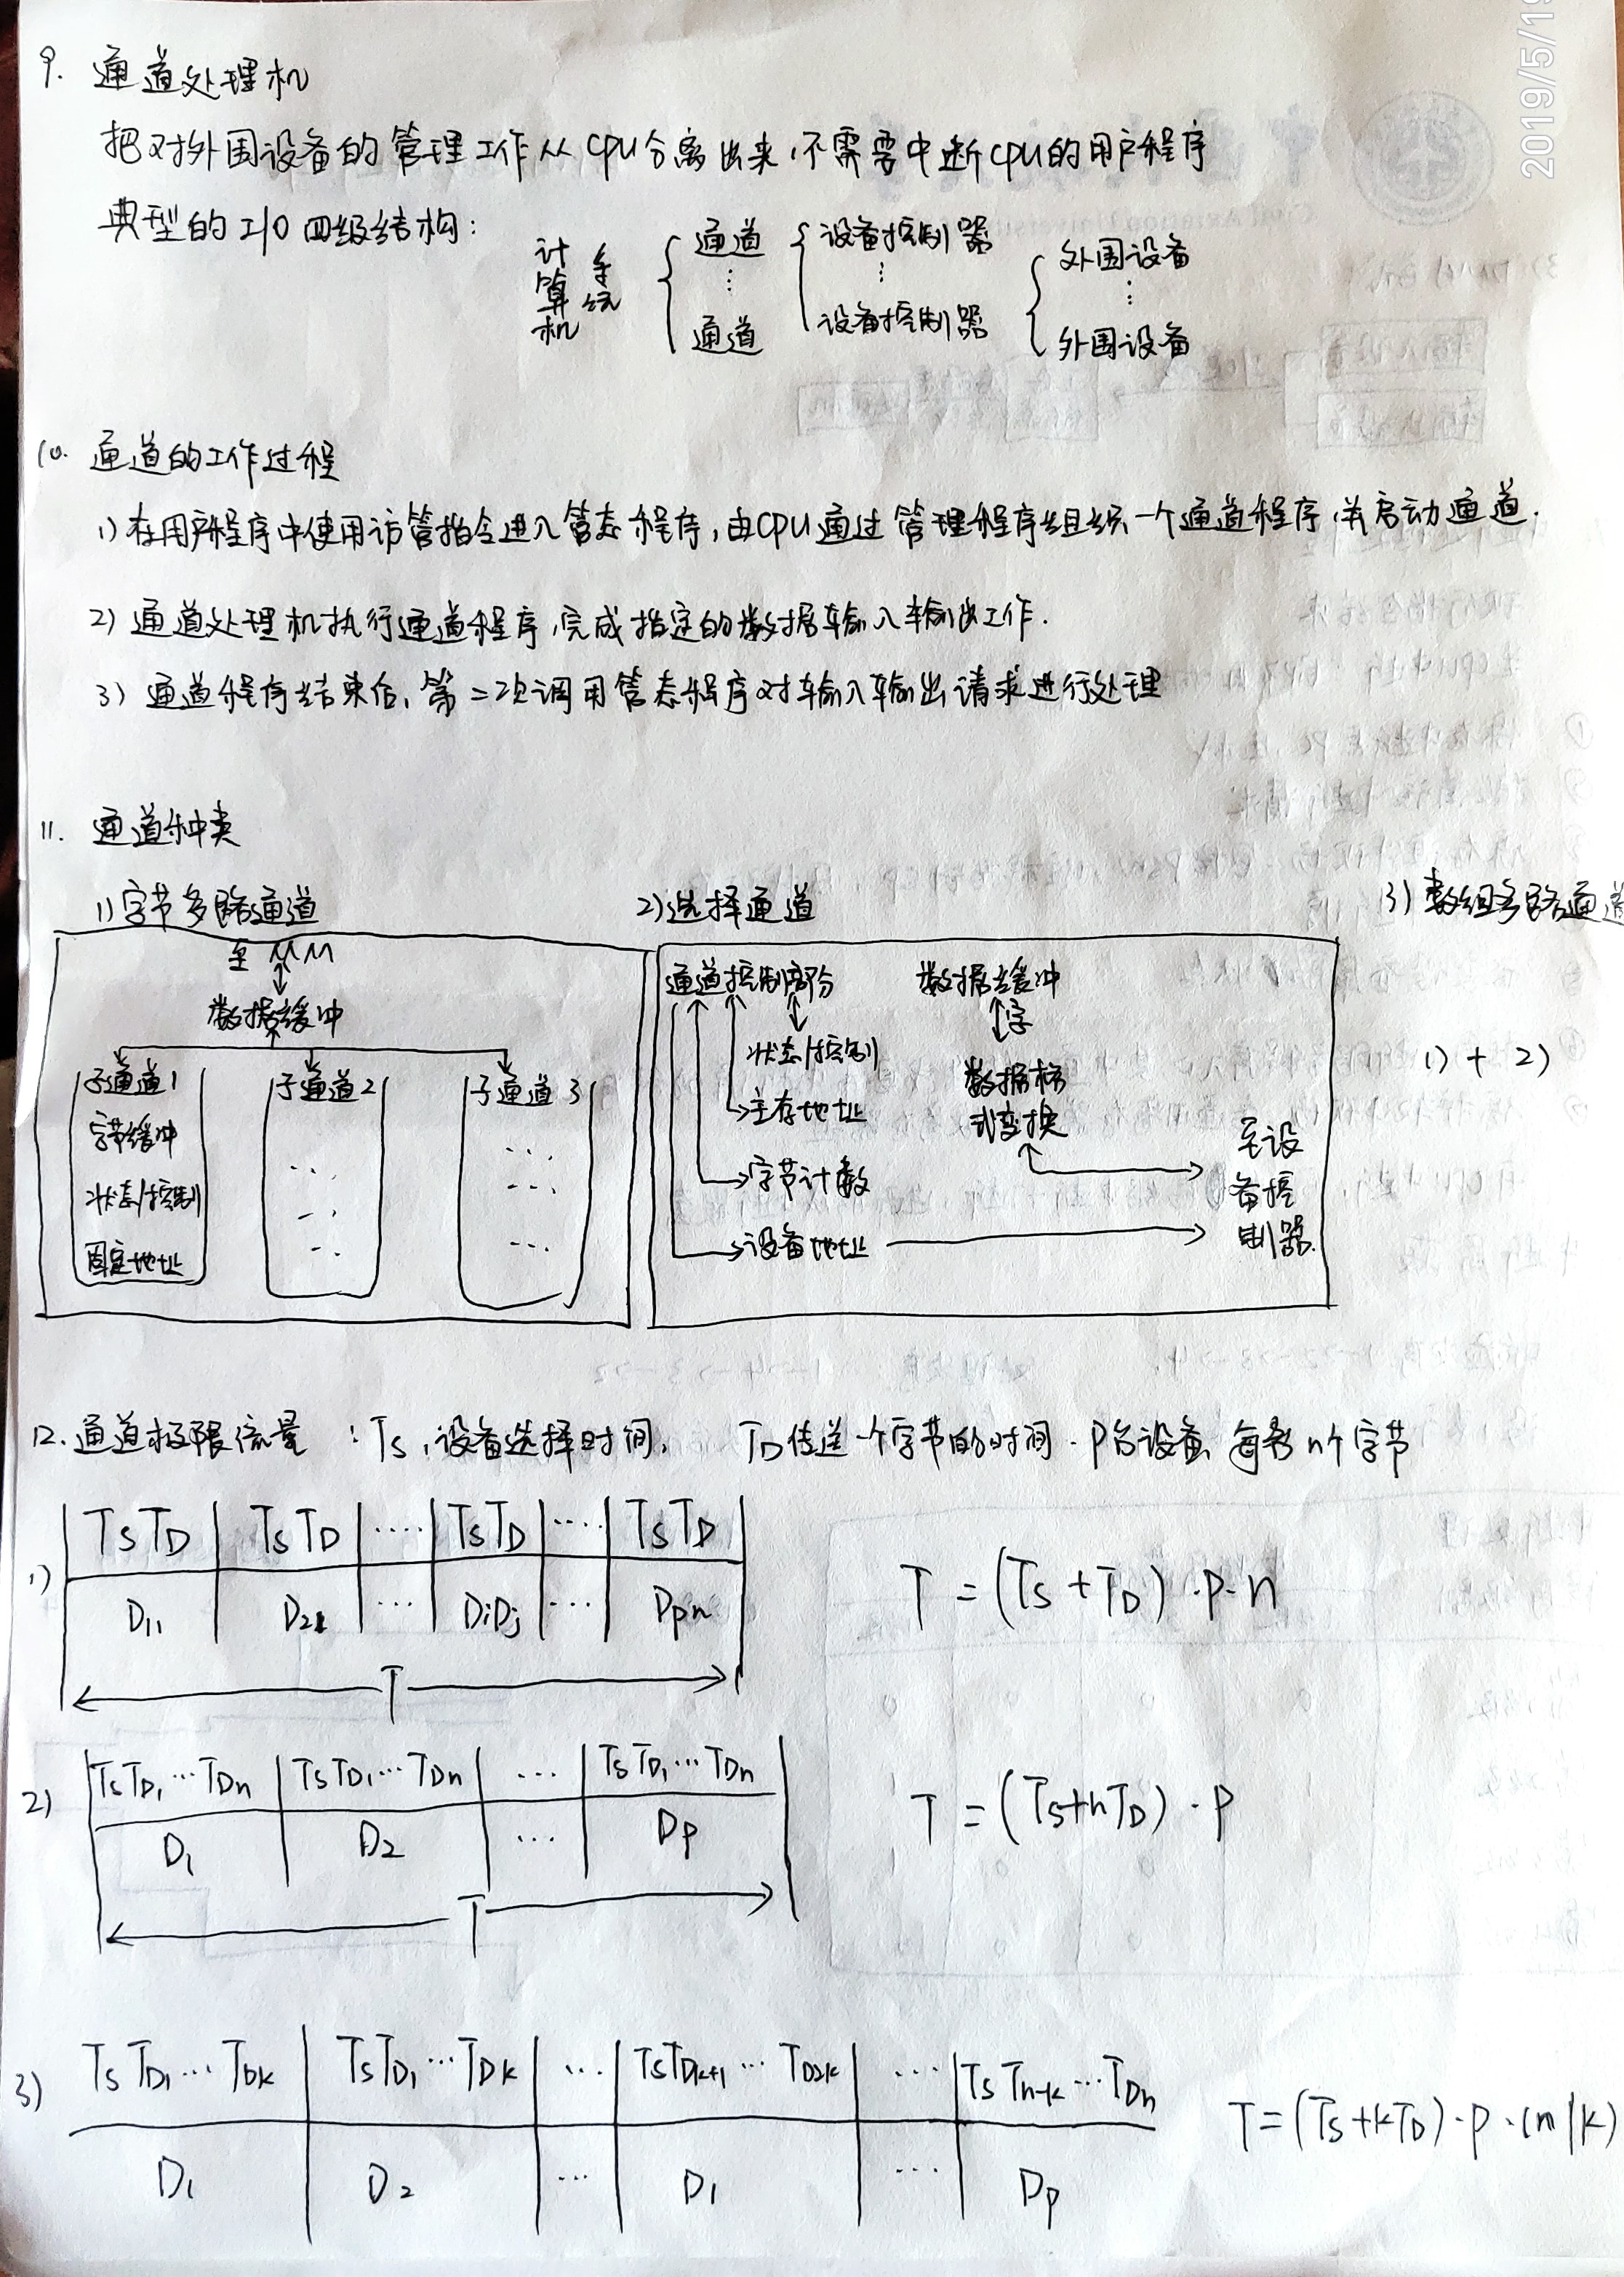 2019/5/19
9. 通道处理机
把对外围设备的管理工作从CPU分离出来,不需要中断CPU的用户程序
典型的I/O四级结构:
计算机系统 { 通道 ⋮ 通道 { 设备控制器 ⋮ 设备控制器 { 外围设备 ⋮ 外围设备
10. 通道的工作过程
1) 在用户程序中使用访管指令进入管态程序,由CPU通过管理程序组织一个通道程序,并启动通道.
2) 通道处理机执行通道程序,完成指定的数据输入输出工作.
3) 通道程序结束后,第二次调用管态程序对输入输出请求进行处理
11. 通道种类
1) 字节多路通道
至MM
数据缓冲
子通道1
字节缓冲
状态/控制
固定地址
子通道2
...
...
...
子通道3
...
...
...
2) 选择通道
通道控制部分
状态/控制
主存地址
字节计数
设备地址
数据缓冲
字
数据格
式变换
至设
备控
制器.
3) 数组多路通道
1) + 2)
12. 通道极限流量 : Ts,设备选择时间, TD传送一个字节的时间. P台设备, 每台n个字节
1)
Ts TD | Ts TD | ···· | Ts TD | ···· | Ts TD
D11 | D21 | ··· | DiDj | ··· | Dpn
T
T = (Ts + TD) · P · n
2)
Ts TD1 ··· TDn | Ts TD1 ··· TDn | ··· | Ts TD1 ··· TDn
D1 | D2 | ··· | DP
T
T = (Ts+nTD) · P
3)
Ts TD1 ··· TDk | Ts TD1 ··· TDk | ··· | Ts TDk+1 ··· TD2k | ··· | Ts Tn-k ··· TDn
D1 | D2 | ··· | D1 | ··· | DP
T = (Ts + kTD) · P · (n/k)